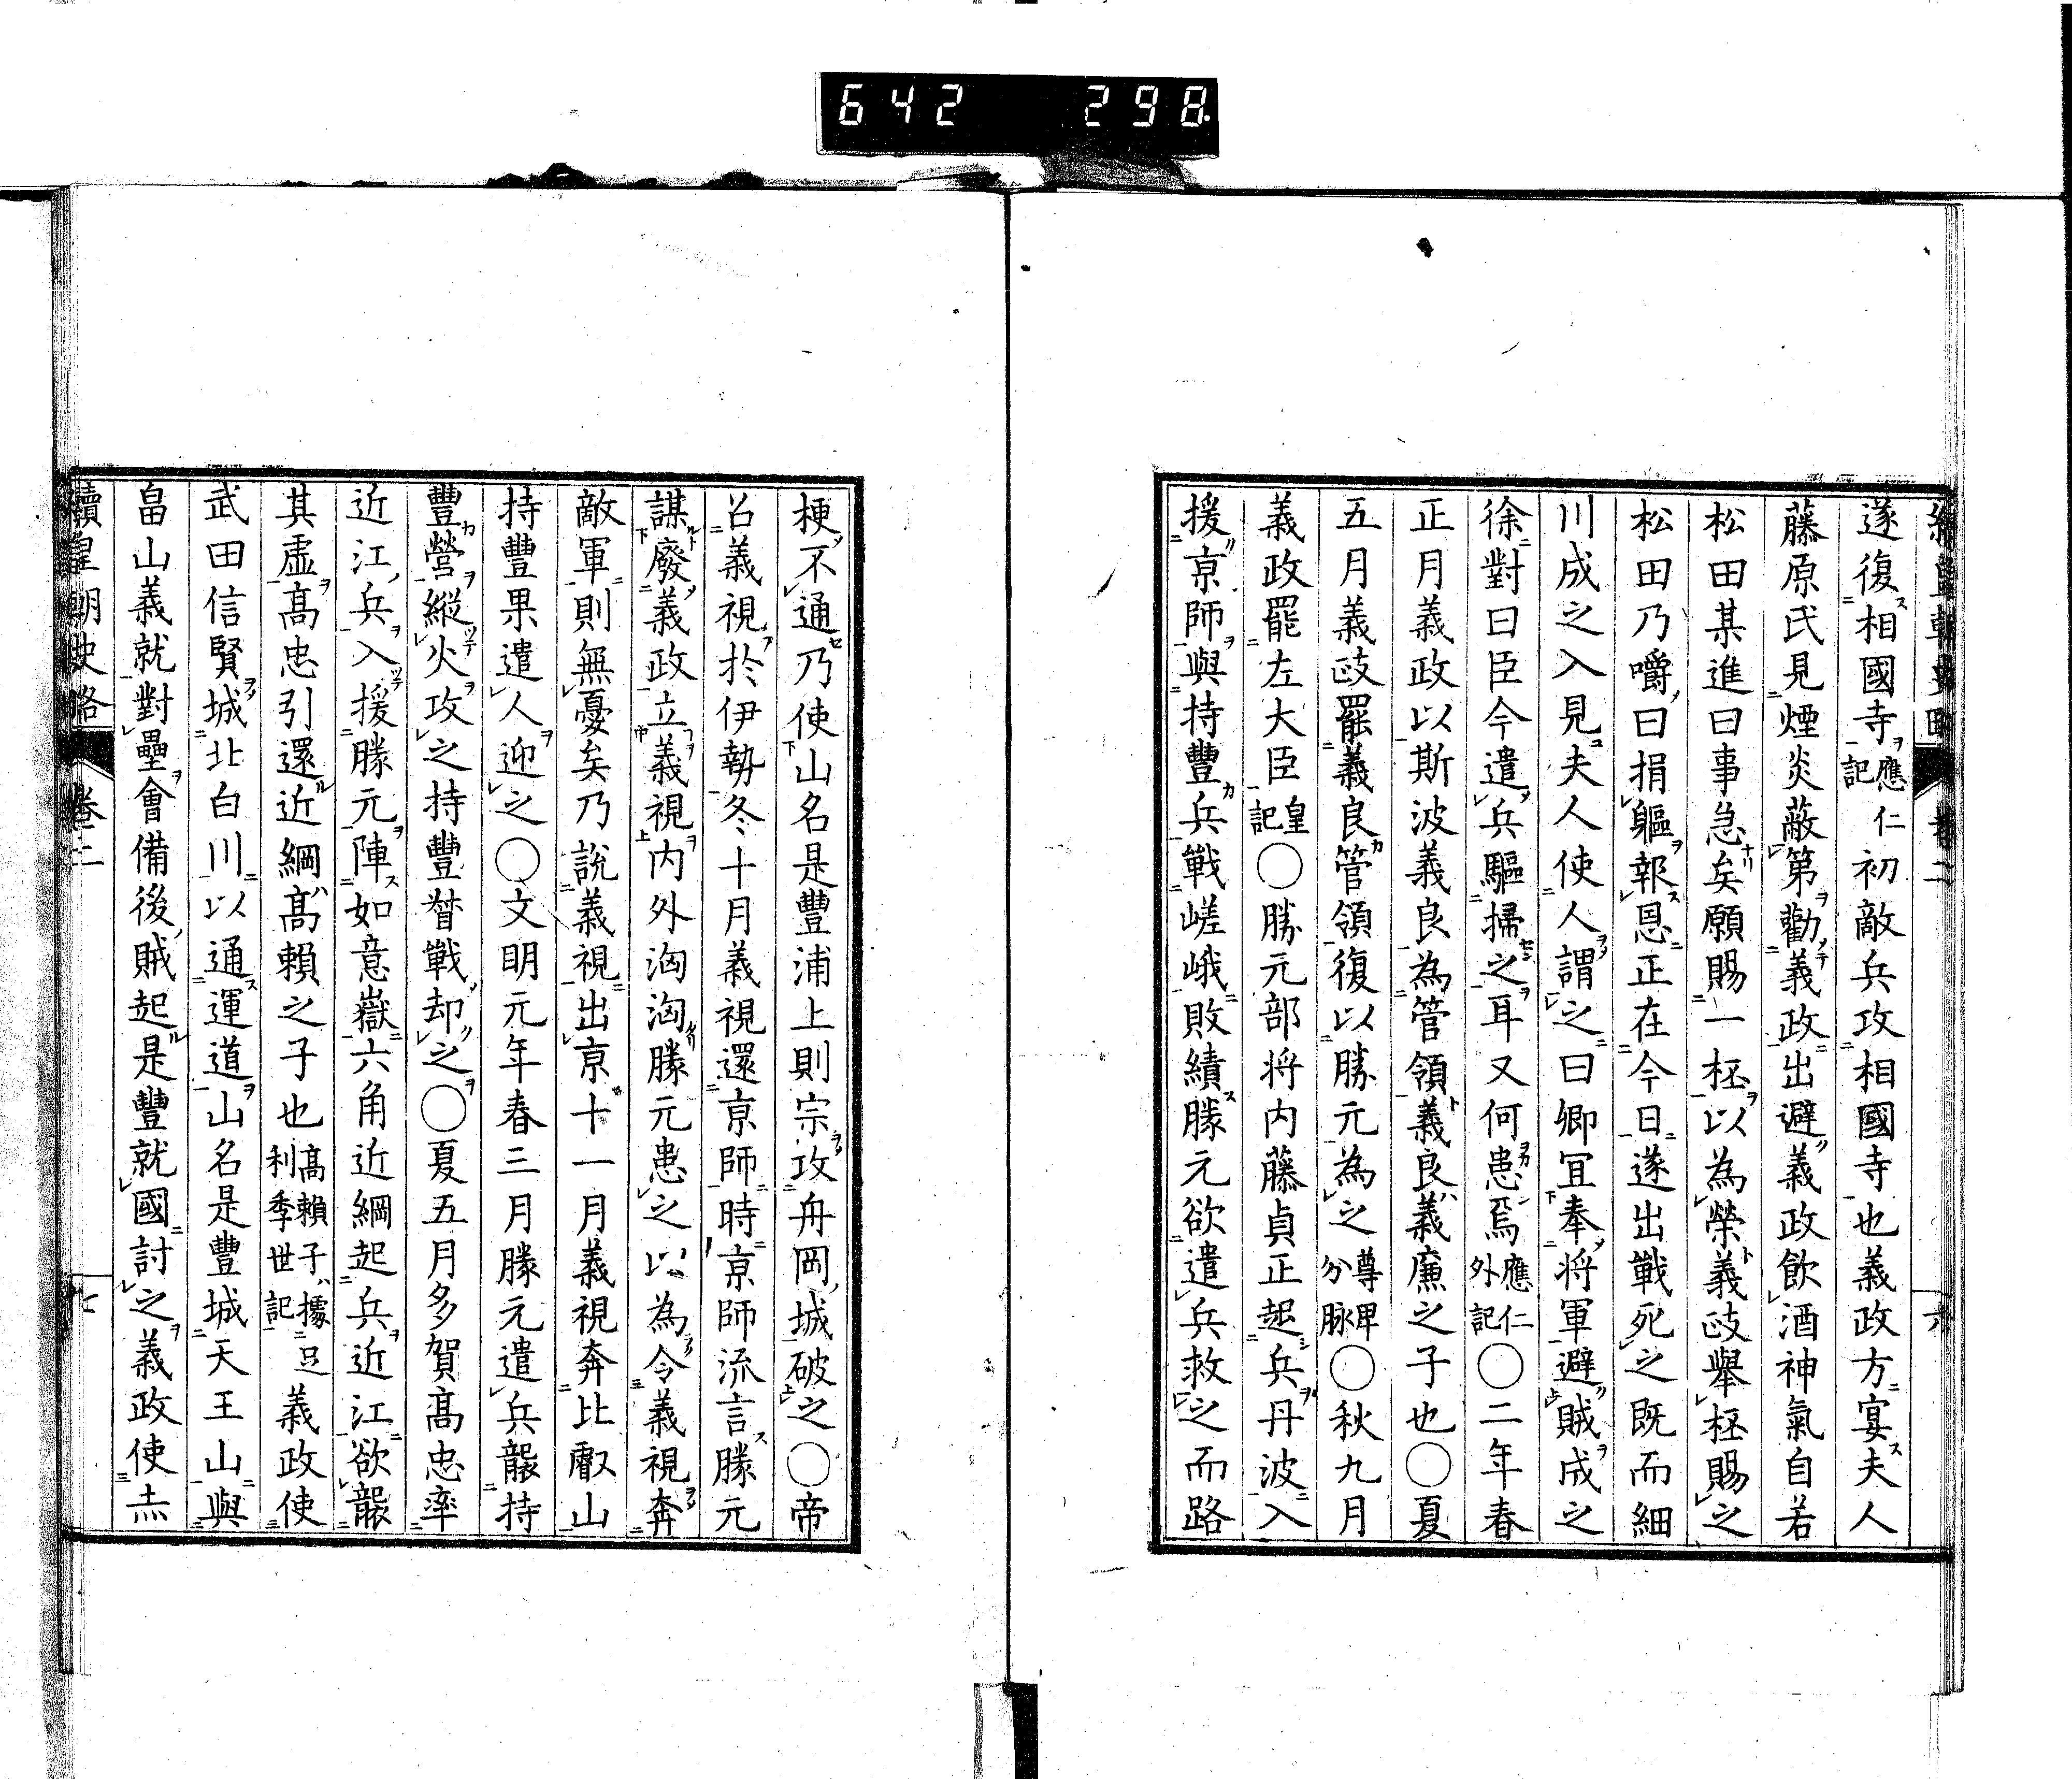 642 298
續皇朝史略 卷二 六
遂復相國寺應仁記初敵兵攻相國寺也義政方宴夫人
藤原氏見煙炎蔽第勸義政出避義政飲酒神氣自若
松田某進曰事急矣願賜一柸以為榮義政舉柸賜之
松田乃嚼曰捐軀報恩正在今日遂出戰死之既而細
川成之入見夫人使人謂之曰卿冝奉將軍避賊成之
徐對曰臣今遣兵驅掃之耳又何患焉應仁外記〇二年春
正月義政以斯波義良為管領義良義廉之子也〇夏
五月義政罷義良管領復以勝元為之尊卑分脉〇秋九月
義政罷左大臣皇記〇勝元部将内藤貞正起兵丹波入
援京師與持豐兵戰嵯峨敗績勝元欲遣兵救之而路
梗不通乃使山名是豐浦上則宗攻舟岡城破之〇帝
召義視於伊勢冬十月義視還京師時京師流言勝元
謀廢義政立義視内外洶洶勝元患之以為令義視奔
敵軍則無憂矣乃說義視出京十一月義視奔比叡山
持豐果遣人迎之〇文明元年春三月勝元遣兵襲持
豐營縱火攻之持豐督戰却之〇夏五月多賀高忠率
近江兵入援勝元陣如意嶽六角近綱起兵近江欲襲
其虛高忠引還近綱高賴之子也高賴子據足利季世記義政使
武田信賢城北白川以通運道山名是豐城天王山與
畠山義就對壘會備後賊起是豐就國討之義政使赤
續皇朝史略 卷二 七